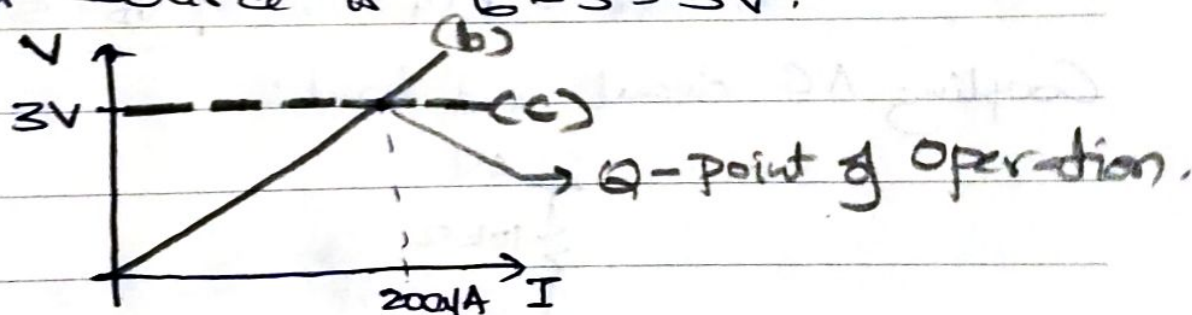 6-3 = 3V.
V
(b)
3V
(c)
Q-Point of Operation.
200μA I